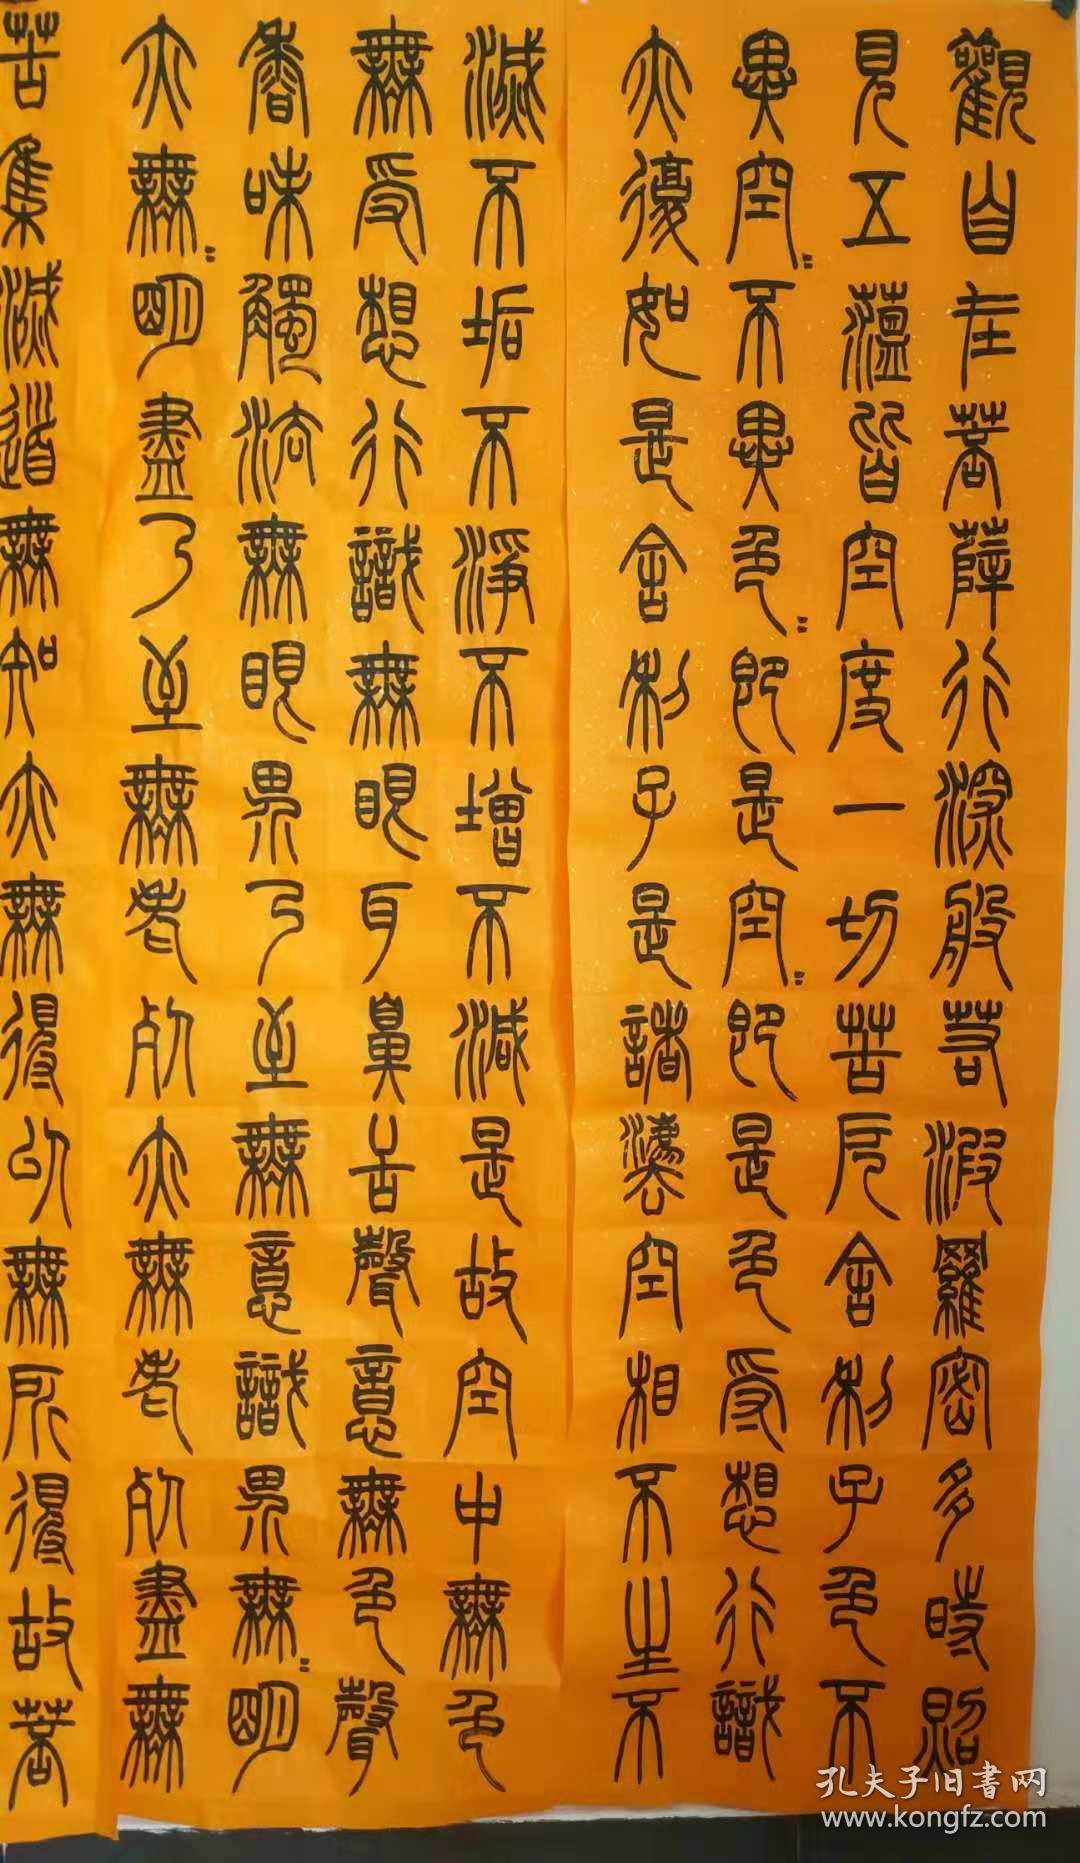 觀自在菩薩行深般若波羅密多時照
見五蘊皆空度一切苦厄舍利子色不
異空〻不異色〻即是空〻即是色受想行識
亦復如是舍利子是諸灋空相不生不
滅不垢不淨不增不減是故空中無色
無受想行識無眼耳鼻舌聲意無色聲
香味觸法無眼界乃至無意識界無〻明
亦無〻明盡乃至無老死亦無老死盡無
苦集滅道無知亦無得以無所得故菩
孔夫子旧書网
www.kongfz.com